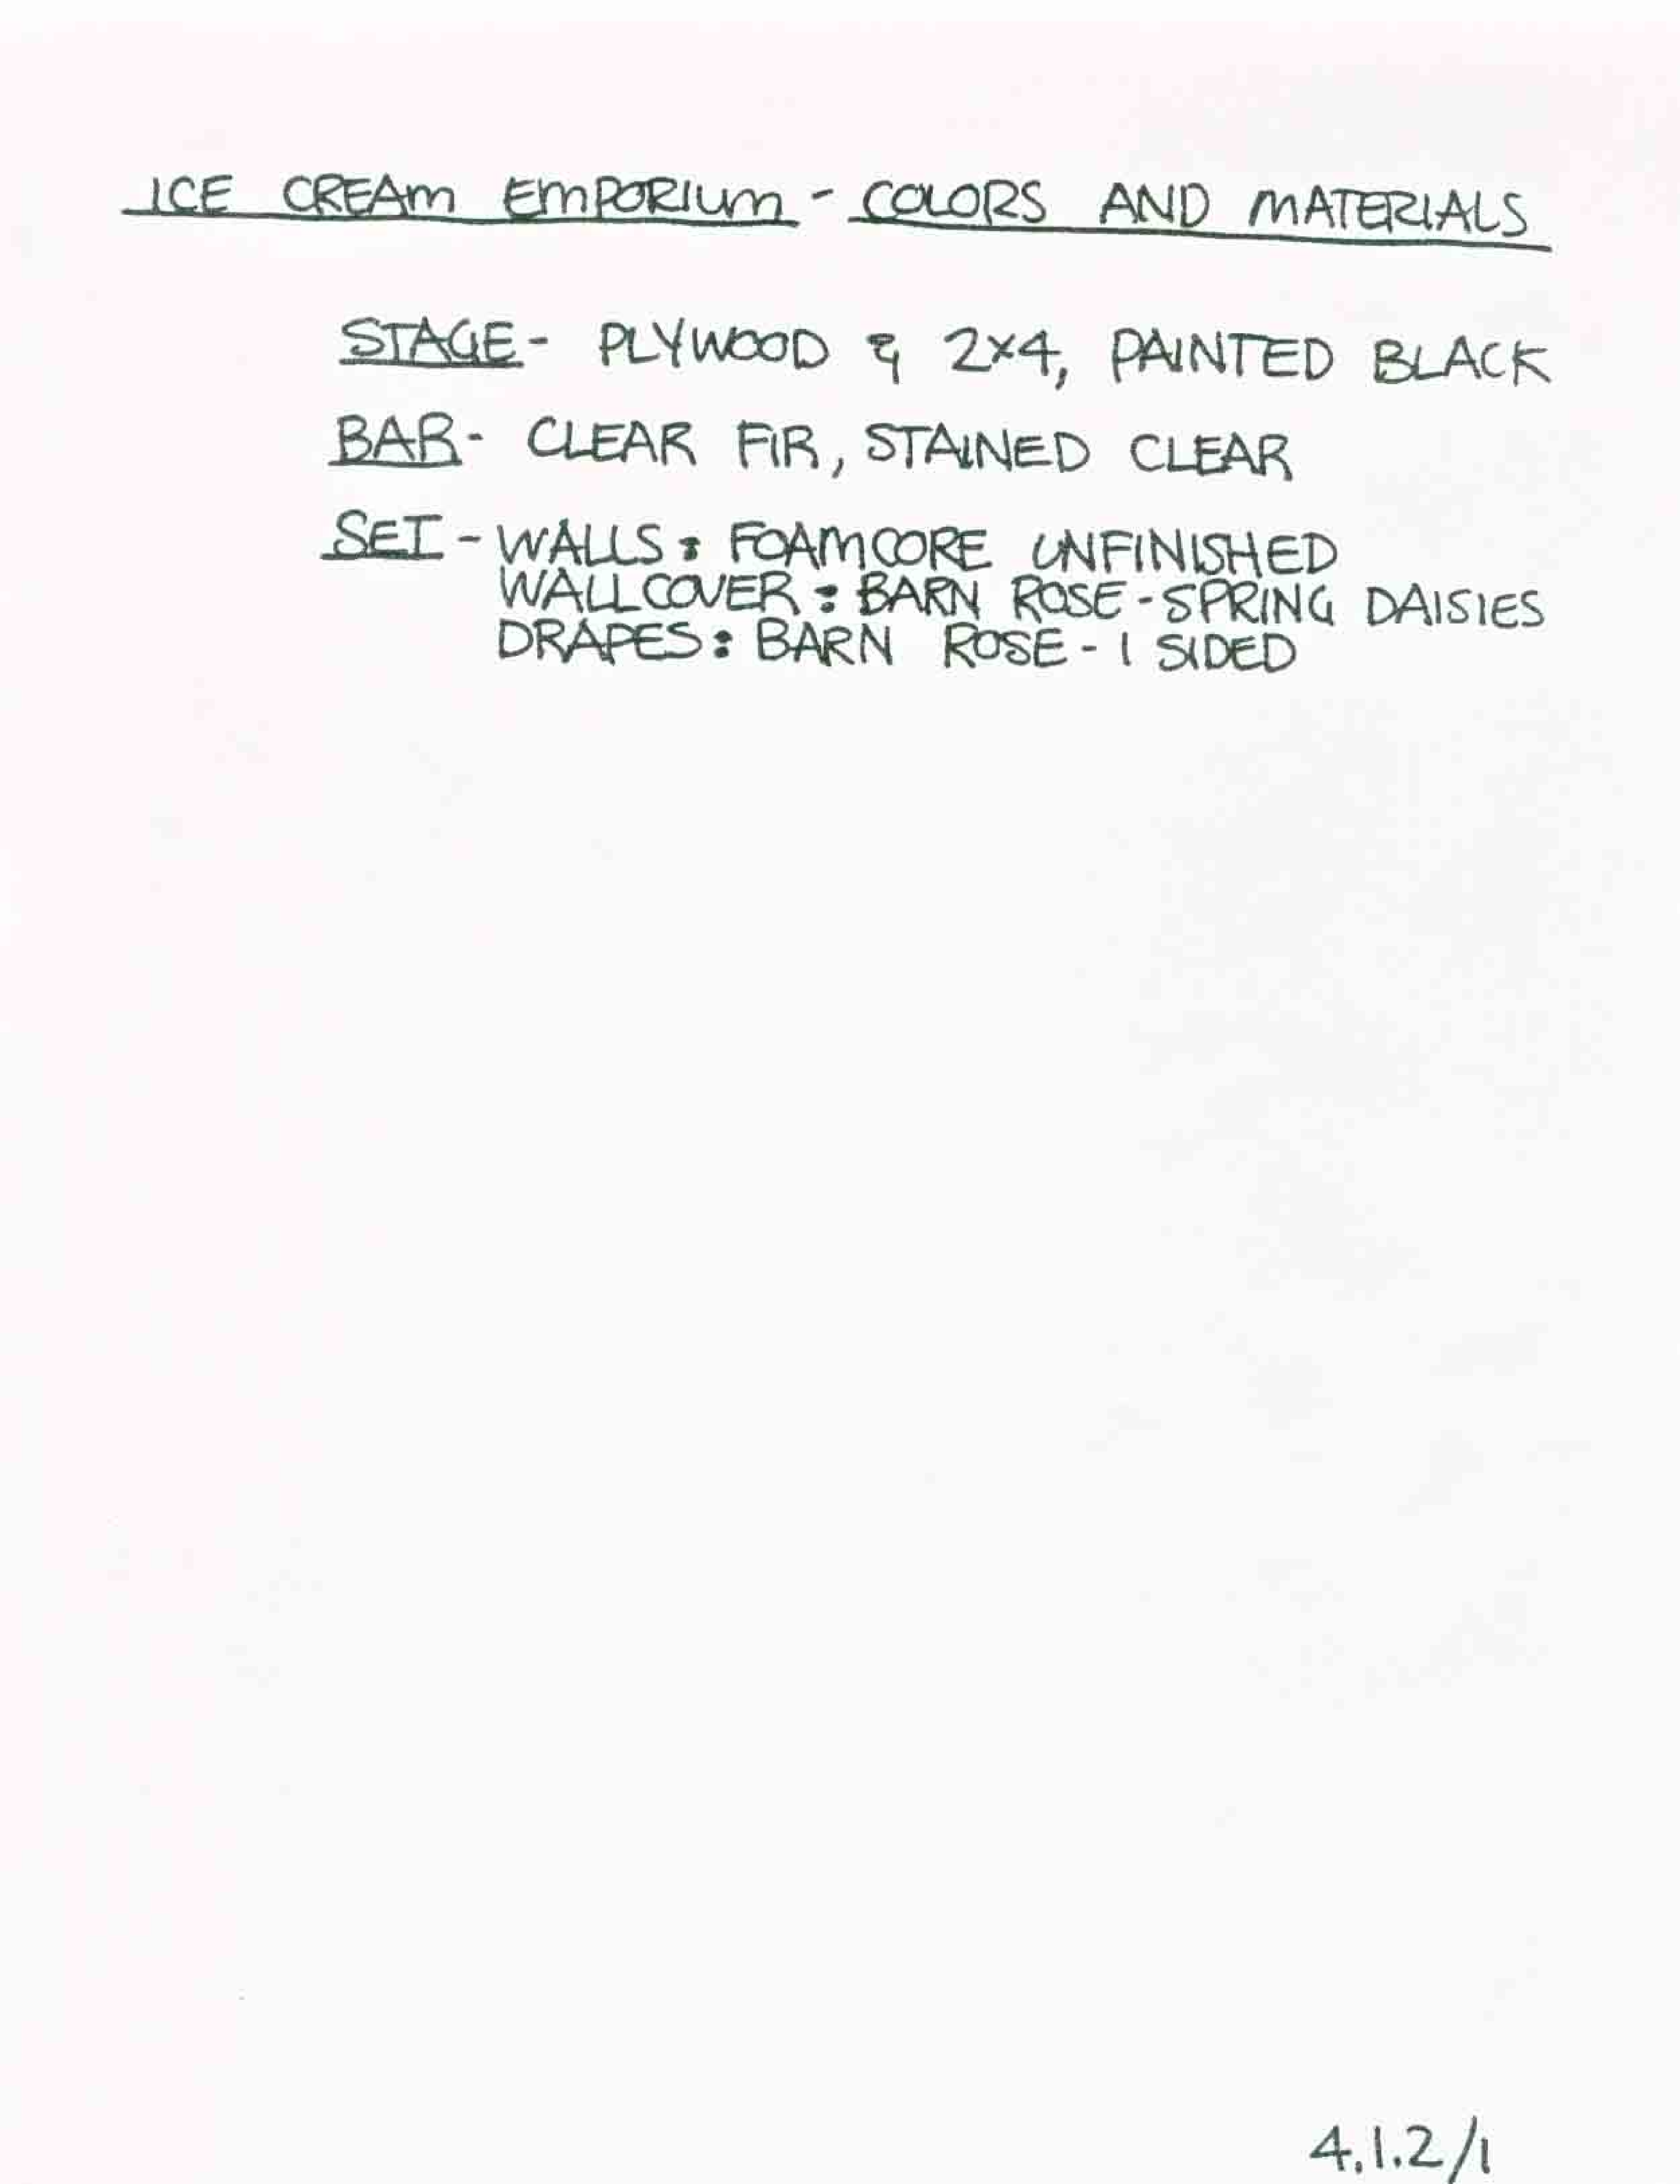 ICE CREAM EMPORIUM - COLORS AND MATERIALS
STAGE - PLYWOOD & 2x4, PAINTED BLACK
BAR - CLEAR FIR, STAINED CLEAR
SET - WALLS: FOAMCORE UNFINISHED
WALLCOVER: BARN ROSE - SPRING DAISIES
DRAPES: BARN ROSE - 1 SIDED
4.1.2/1